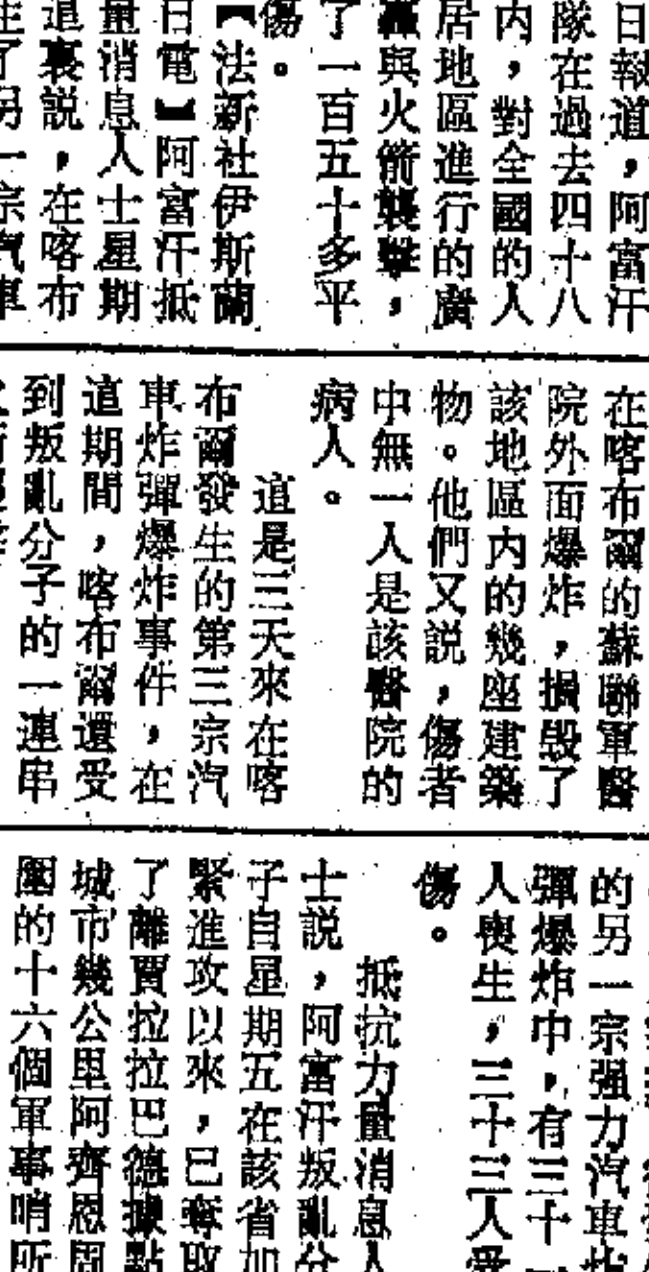 日報道，阿富汗
隊在過去四十八
內，對全國的人
居地區進行的廣
轟與火箭襲擊，
了一百五十多平
傷。
【法新社伊斯蘭
日電】阿富汗抵
量消息人士星期
這裏説，在喀布
生了另一宗汽車
在喀布爾的蘇聯軍醫
院外面爆炸，損毀了
該地區內的幾座建築
物。他們又説，傷者
中無一人是該醫院的
病人。
這是三天來在喀
布爾發生的第三宗汽
車炸彈爆炸事件，在
這期間，喀布爾還受
到叛亂分子的一連串
的另一宗强力汽車炸
彈爆炸中，有三十
人喪生，三十三人受
傷。
抵抗力量消息人
士説，阿富汗叛亂分
子自星期五在該省加
緊進攻以來，已奪取
了離賈拉拉巴德據點
城市幾公里阿齊恩周
圍的十六個軍事哨所